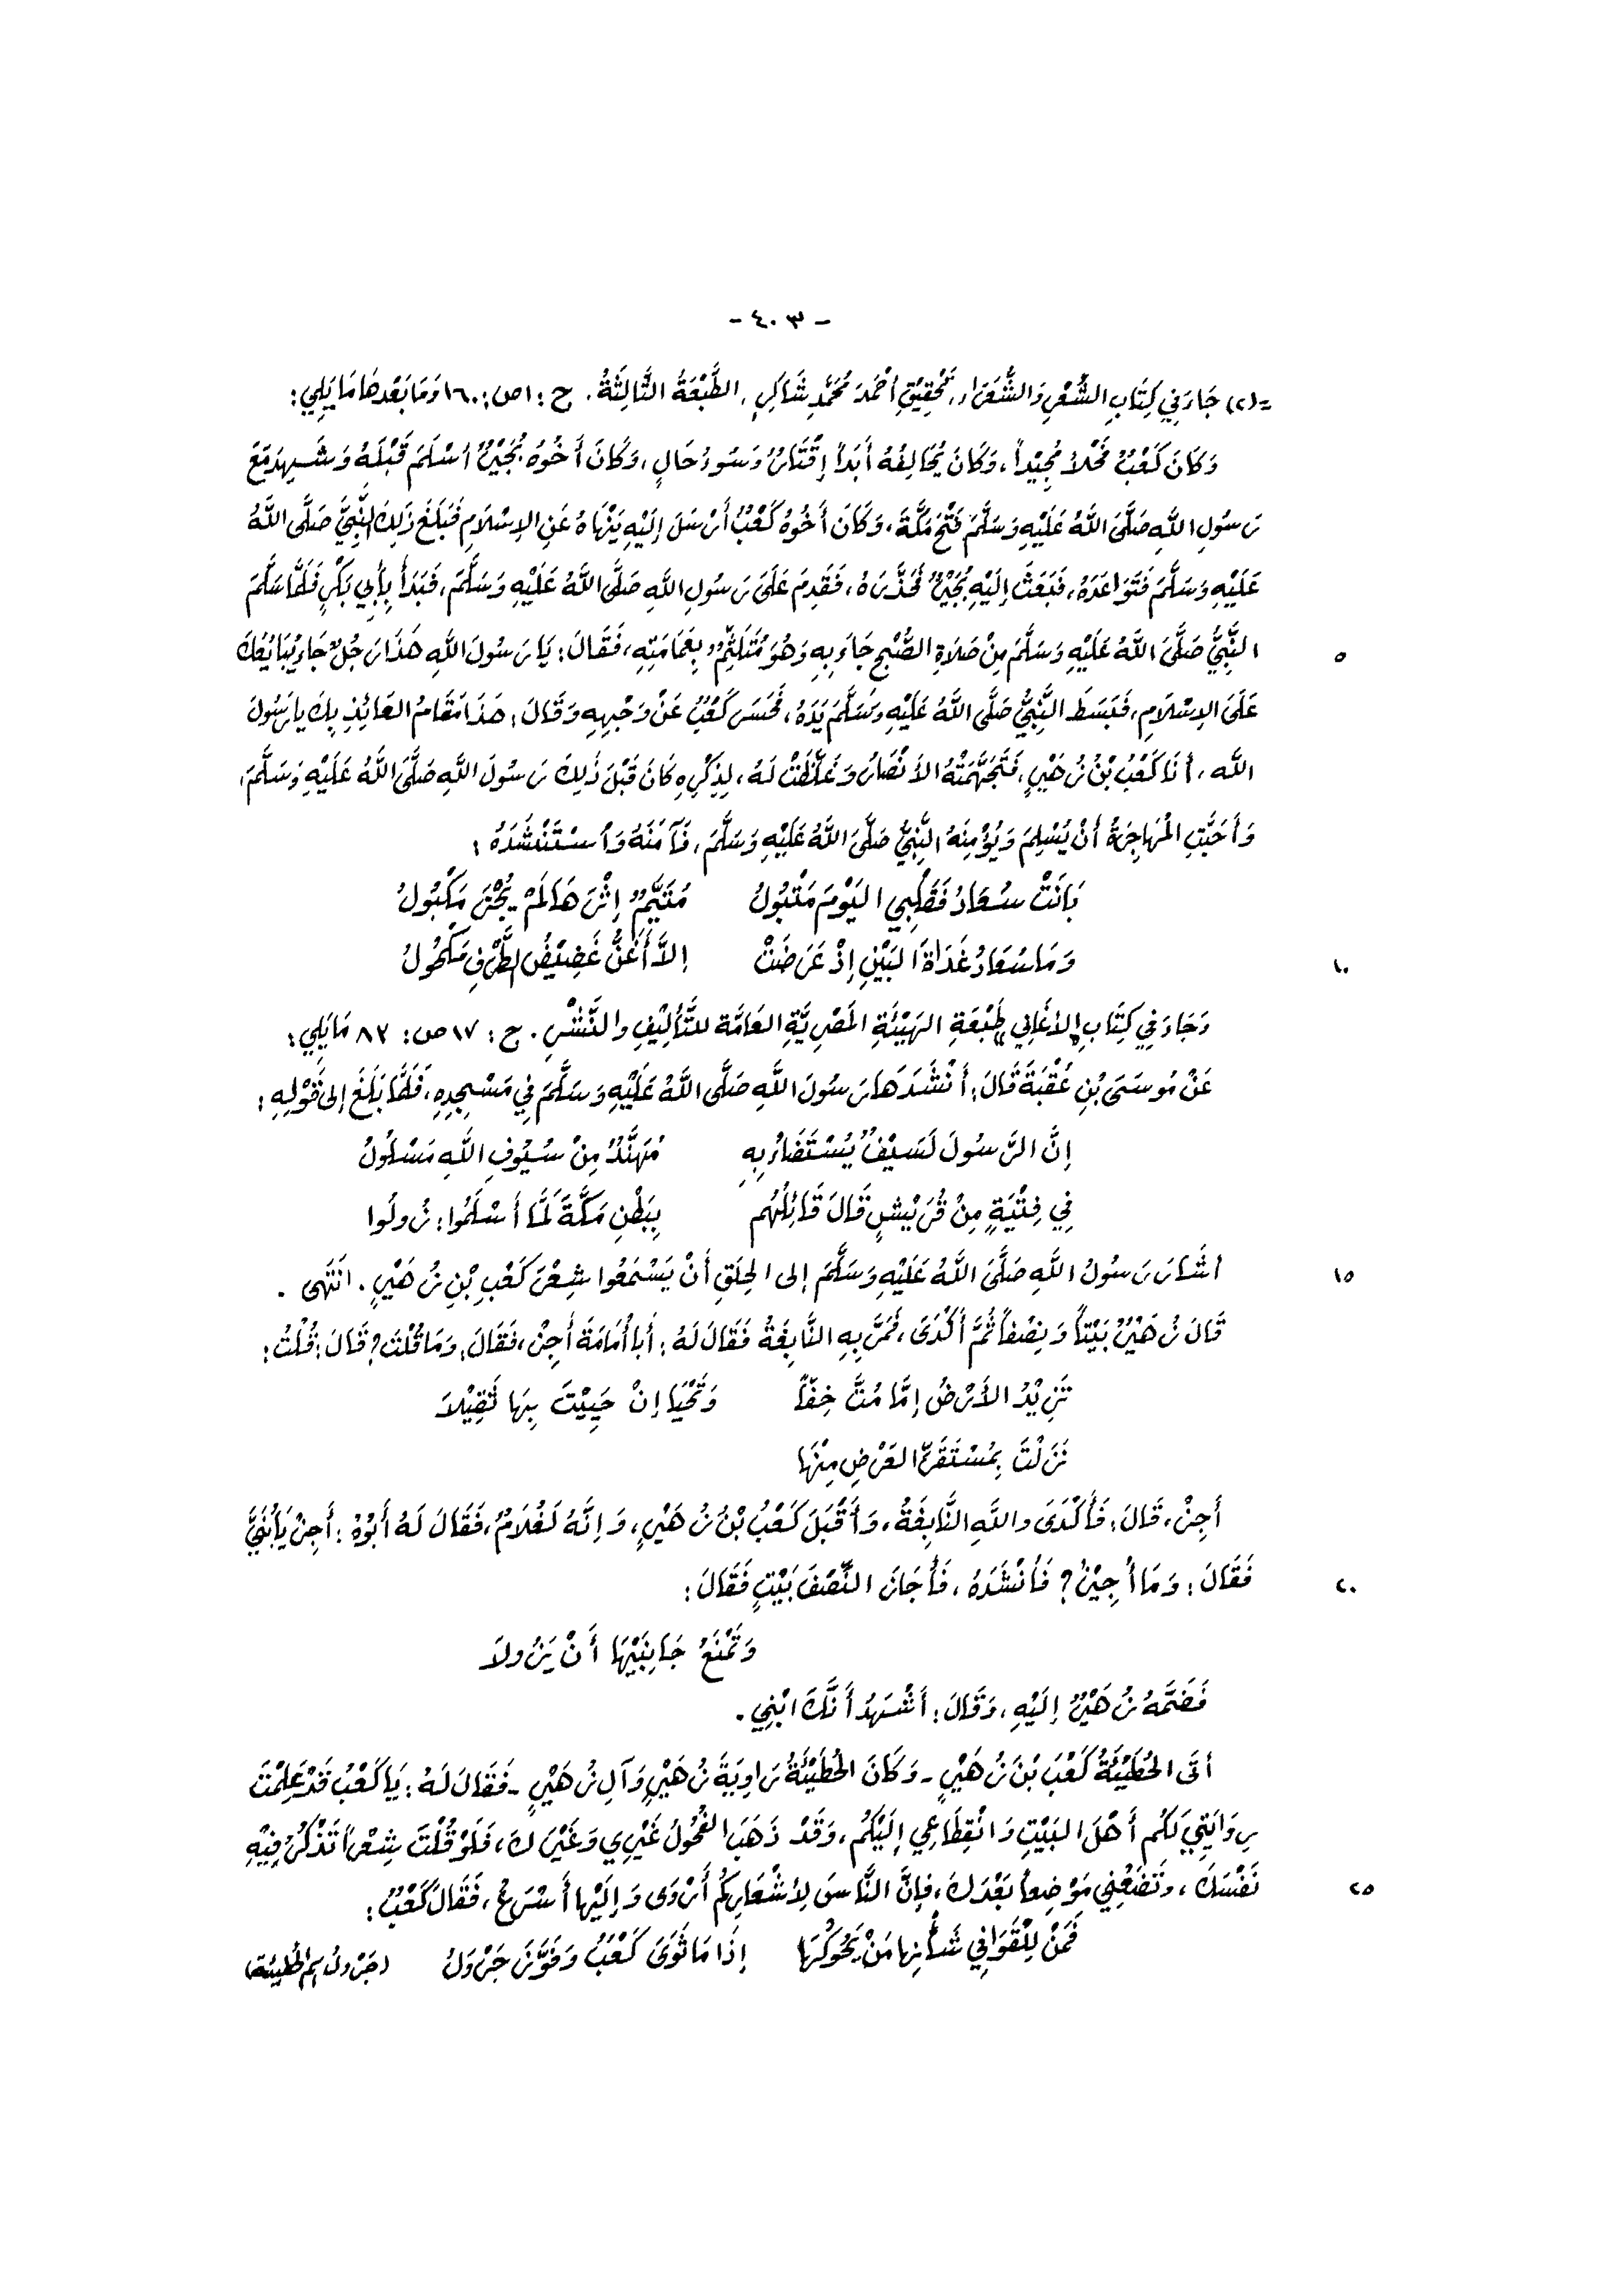 - ٤٠٣ -
=(٢) جَاءَ فِي كِتَابِ الشِّعْرِ وَالشُّعَرَاءِ، تَحْقِيْقِ أَحْمَدَ مُحَمَّد شَاكِرٍ، الطَّبْعَةُ الثَّالِثَةُ. ج: ١ ص: ١٦٠ وَمَا بَعْدَهَا مَا يَلِي:
وَكَانَ كَعْبٌ فَحْلاً مُجِيْداً، وَكَانَ يُحَالِفُهُ أَبَداً إِقْتَارٌ وَسُوءُ حَالٍ، وَكَانَ أَخُوهُ بُجَيْرٌ أَسْلَمَ قَبْلَهُ وَشَهِدَ مَعَ
رَسُولِ اللَّهِ صَلَّى اللَّهُ عَلَيْهِ وَسَلَّمَ فَتْحَ مَكَّةَ، وَكَانَ أَخُوهُ كَعْبٌ أَرْسَلَ إِلَيْهِ يَنْهَاهُ عَنِ الإِسْلَامِ فَبَلَغَ ذَلِكَ النَّبِيَّ صَلَّى اللَّهُ
عَلَيْهِ وَسَلَّمَ فَتَوَاعَدَهُ، فَبَعَثَ إِلَيْهِ بُجَيْرٌ فَحَذَّرَهُ، فَقَدِمَ عَلَى رَسُولِ اللَّهِ صَلَّى اللَّهُ عَلَيْهِ وَسَلَّمَ، فَبَدَأَ بِأَبِي بَكْرٍ فَلَمَّا سَلَّمَ
النَّبِيُّ صَلَّى اللَّهُ عَلَيْهِ وَسَلَّمَ مِنْ صَلَاةِ الصُّبْحِ جَاءَ بِهِ وَهُوَ مُتَلَثِّمٌ بِعَمَامَتِهِ، فَقَالَ: يَا رَسُولَ اللَّهِ هَذَا رَجُلٌ جَاءَ يُبَايُعكَ ٥
عَلَى الإِسْلَامِ، فَبَسَطَ النَّبِيُّ صَلَّى اللَّهُ عَلَيْهِ وَسَلَّمَ يَدَهُ، فَحَسَرَ كَعْبٌ عَنْ وَجْهِهِ وَقَالَ: هَذَا مَقَامُ العَائِذِ بِكَ يا رَسُولَ
اللَّه، أَنَا كَعْبُ بْنُ زُهَيْرٍ، فَتَجَهَّمَتْهُ الأَنْصَارُ وَغَلَّظَتْ لَهُ، لِذِكْرِهِ كَانَ قَبْلَ ذَلِكَ رَسُولَ اللَّهِ صَلَّى اللَّهُ عَلَيْهِ وَسَلَّمَ،
وَأَحَبَّتِ الْمُهَاجِرَةُ أَنْ يُسْلِمَ وَيُؤْمِنَهُ النَّبِيُّ صَلَّى اللَّهُ عَلَيْهِ وَسَلَّمَ، فَآمَنَهُ وَاسْتَنْشَدَهُ:
بَانَتْ سُعَادُ فَقَلْبِي اليَوْمَ مَتْبُولُ مُتَيَّمٌ إِثْرَهَا لَمْ يُجْزَ مَكْبُولُ
وَمَا سُعَادُ غَدَاةَ البَيْنِ إِذْ عَرَضَتْ إِلاَّ أَغَنُّ غَضِيْضُ الطَّرْفِ مَكْحُولُ ١٠
وَجَاءَ فِي كِتَابِ الأَغَانِي طَبْعَةِ الهَيْئَةِ المَصْرِيَّةِ العَامَّة للتَّأْلِيْفِ والنَّشْرِ. ج: ١٧ ص: ٨٢ مَا يَلِي:
عَنْ مُوسَى بْنِ عُقْبَةَ قَالَ: أَنْشَدَهَا رَسُولَ اللَّهِ صَلَّى اللَّهُ عَلَيْهِ وَسَلَّمَ فِي مَسْجِدِهِ، فَلَمَّا بَلَغَ إلى قَوْلِهِ:
إِنَّ الرَّسُولَ لَسَيْفٌ يُسْتَضَاءُ بِهِ مُهَنَّدٌ مِنْ سُيُوفِ اللَّهِ مَسْلُولُ
فِي فِتْيَةٍ مِنْ قُرَيْشٍ قَالَ قَائِلُهُم بِبَطْنِ مَكَّةَ لَمَّا أَسْلَمُوا: زُولُوا
أَشَارَ رَسُولُ اللَّهِ صَلَّى اللَّهُ عَلَيْهِ وَسَلَّمَ إلى الحِلَقِ أَنْ يَسْمَعُوا شِعْرَ كَعْبِ بْنِ زُهَيْرٍ. انْتَهَى. ١٥
قَالَ زُهَيْرٌ بَيْتاً وَنِصْفاً ثُمَّ أَكْدَى، فَمَرَّ بِهِ النَّابِغَةُ فَقَالَ لَهُ: أَبا أُمَامَةَ أَجِزْ، فَقَالَ: وَمَا قُلْتَ؟ قَالَ: قُلْتُ:
تَزِيْدُ الأَرْضُ إِمَّا مُتَّ خِفّاً وَتَحْيَا إِنْ حَيِيْتَ بِهَا ثَقِيْلاَ
نَزَلْتَ بِمُسْتَقَرِّ العَرْضِ مِنْهَا
أَجِزْ، قَالَ: فَأَكْدَى واللَّهِ النَّابِغَةُ، وَأَقْبَلَ كَعْبُ بْنُ زُهَيْرٍ، وَإِنَّهُ لَغُلَامٌ، فَقَالَ لَهُ أَبُوْهُ: أَجِزْ يَا بُنَيَّ
فَقَالَ: وَمَا أُجِيْزُ؟ فَأَنْشَدَهُ، فَأَجَازَ النِّصْفَ بَيْتٍ فَقَالَ: ٢٠
وَتَمْنَعُ جَانِبَيْهَا أَنْ يَزُولاَ
فَضَمَّهُ زُهَيْرٌ إِلَيْهِ، وَقَالَ: أَشْهَدُ أَنَّكَ ابْنِي.
أَتَى الحُطَيْئَةُ كَعْبَ بْنَ زُهَيْرٍ - وَكَانَ الحُطَيْئَةُ رَاوِيَةَ زُهَيْرٍ وَآلِ زُهَيْرٍ - فَقَالَ لَهُ: يَا كَعْبُ قَدْ عَلِمْتَ
رِوَايَتِي لَكُم أَهْلَ البَيْتِ وَانْقِطَاعِي إِلَيْكُم، وَقَدْ ذَهَبَ الفُحُولُ غَيْرِي وَغَيْرَكَ، فَلَوْ قُلْتَ شِعْراً تَذْكُرُ فِيْهِ
نَفْسَكَ، وتَضَعُنِي مَوْضِعاً بَعْدَكَ، فإِنَّ النَّاسَ لِأَشْعَارِكُم أَرْوَى وَإِلَيْها أَسْرَعُ، فَقَالَ كَعْبٌ: ٢٥
فَمَنْ لِلْقَوَافِي شَأْنِهَا مَنْ يَحُوكُهَا إِذَا مَا ثَوَى كَعْبٌ وَفَوَّزَ جَرْوَلُ (جَرْوَلُ اسم الحُطَيئة)